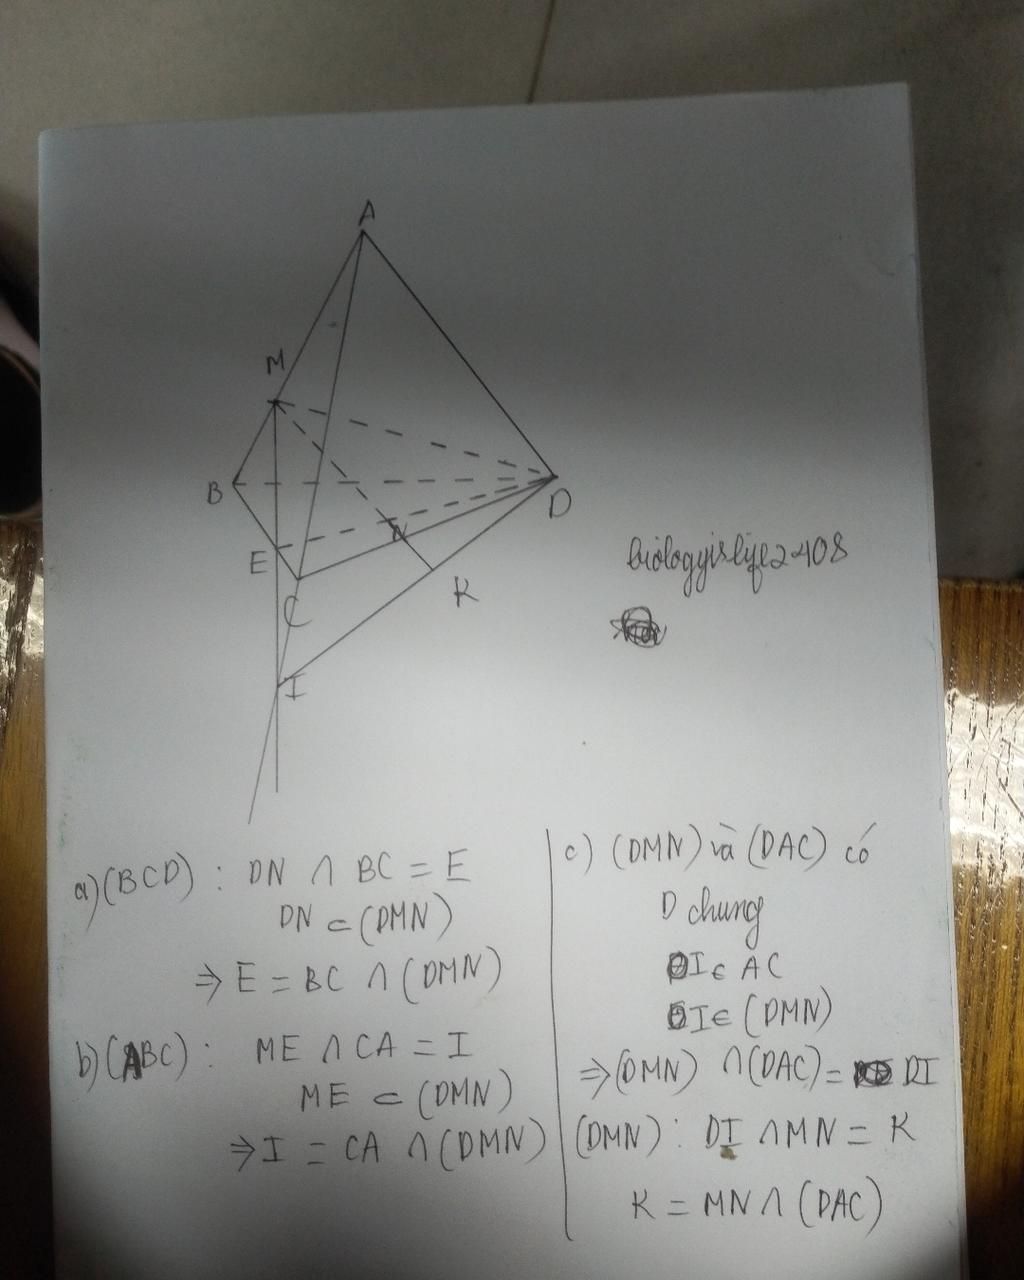 A
M
B
D
E
N
K
C
I
biologyislife2408
a) (BCD) : DN ∩ BC = E
DN ⊂ (DMN)
⇒ E = BC ∩ (DMN)
b) (ABC) : ME ∩ CA = I
ME ⊂ (DMN)
⇒ I = CA ∩ (DMN)
c) (DMN) và (DAC) có
D chung
I ∈ AC
I ∈ (DMN)
⇒ (DMN) ∩ (DAC) = DI
(DMN) : DI ∩ MN = K
K = MN ∩ (DAC)